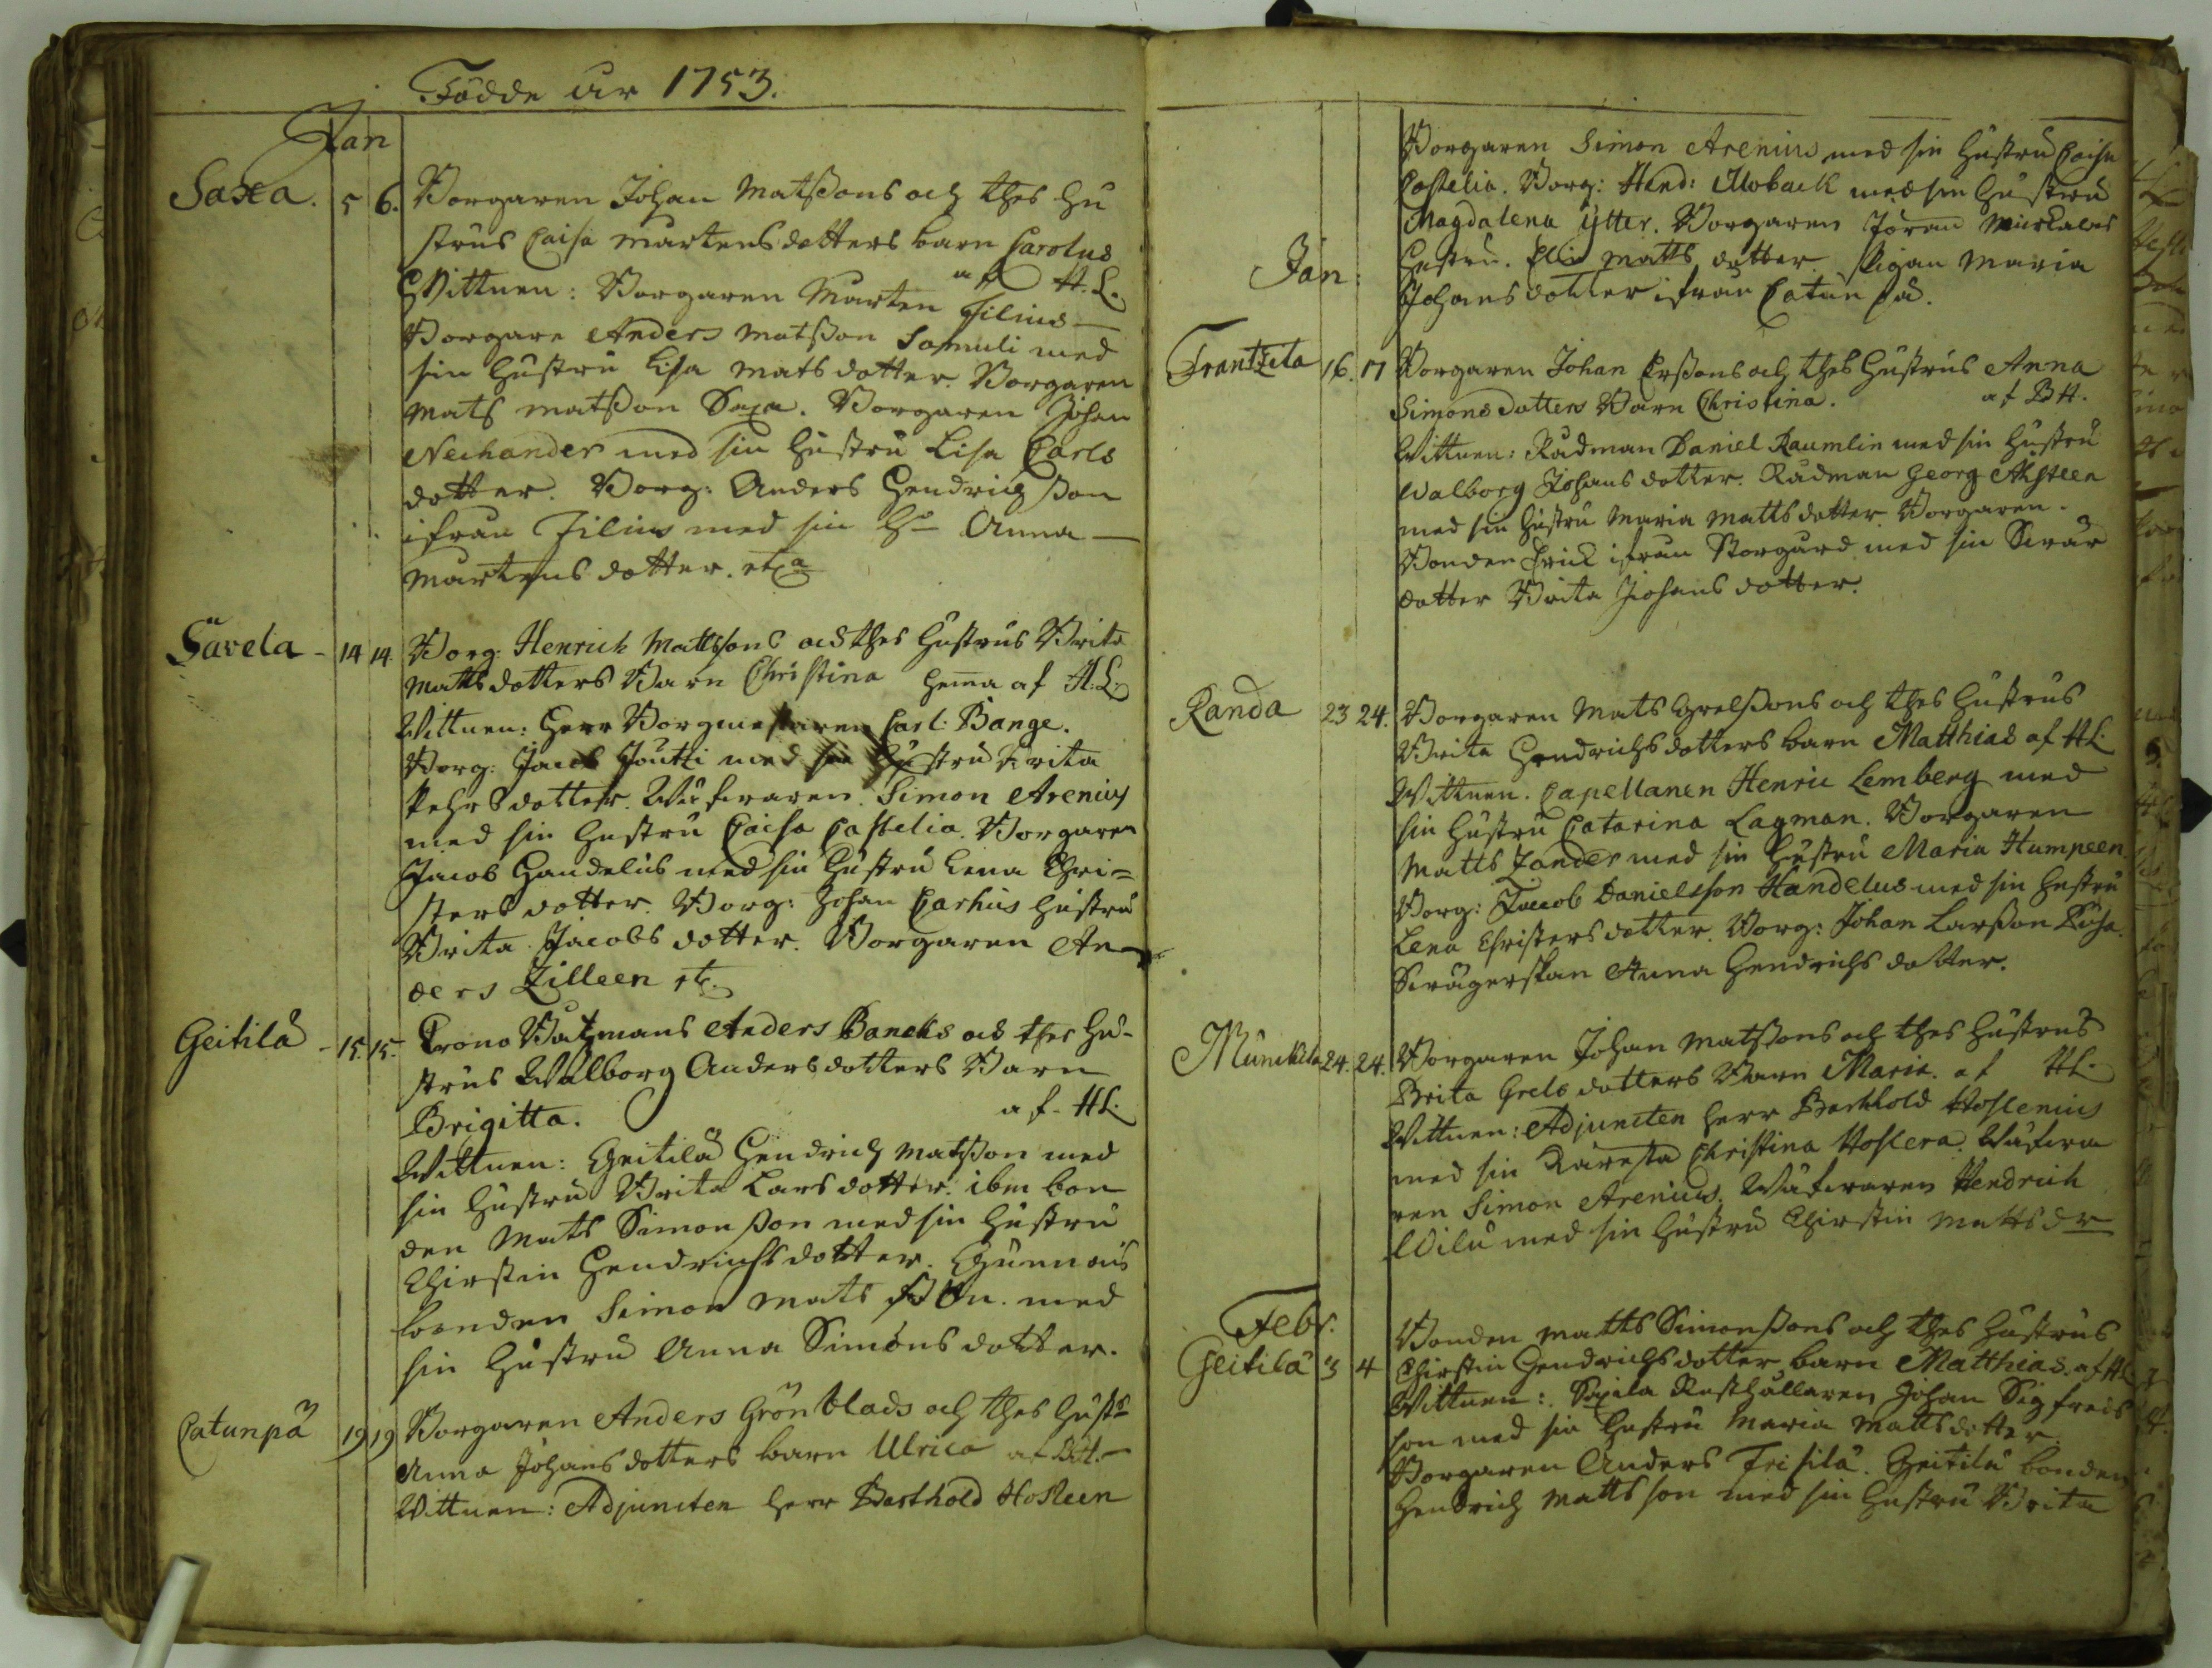 Födde år 1753.
Jan
Saxa. 5 6. Borgaren Johan Matssons och thes hu
strus Caisa Mårtensdotters barn Carolus
af H.L.
Wittnen: Borgaren Mårten Filius
Borgare Anders Matsson Samuli med
sin hustru Lisa Matsdotter. Borgaren
Mats Matsson Saxa. Borgaren Johan
Neihander med sin hustru Lisa Carls
dotter. Borg: Anders Hendrichsson
ifrån Filius med sin H Anna
Mårtensdotter. etca
Sävela - 14 14. Borg: Henrich Mattssons och thes hustrus Brita
Mattsdotters Barn Christina hema af H.L.
Wittnen: Herr Borgmästaren Carl Bange.
Borg: Jacob Joutti med sin hustru Brita
Pehrsdotter. Wäfwaren Simon Arenius
med sin hustru Caisa Castelia. Borgaren
Jacob Handelus med sin hustru Lena Chri=
stersdotter. Borg: Johan Carhus hustru
Brita Jacobsdotter. Borgaren An-
ders Zilleen etc.
Geitilä - 15. 15. Crono Båtzmans Anders Bancks och thes hu-
strus Walborg Andersdotters Barn
Brigitta. af H.L.
Wittnen: Geitilä Hendrich Matsson med
sin hustru Brita Larsdotter. ibm bon
den Mats Simonsson med sin hustru
Chirstin Hendrichsdotter. Gunnois
bonden Simon Mats son. med
sin hustru Anna Simonsdotter.
Catunpä 19 19 Borgaren Anders Grönblads och thes hust
Anna Johansdotters barn Ulrica af BH.
Wittnen: Adjuncten herr Barthold Hosleen
Borgaren Simon Arenius med sin hustru Caisa
Castelia. Borg: Hend: Moback med sin hustru
Magdalena Ytter. Borgaren Jöran
Jan: hustru. Elin Matts dotter. Pigan Maria
Johansdotter ifrån Catunpä.
Frantzila 16. 17 Borgaren Johan Erssons och thes hustrus Anna
Simonsdotters Barn Christina. af BH.
Wittnen: Rådman Daniel Raumlin med sin hustru
Walborg Johansdotter. Rådman Georg Ahsteen
med sin hustru Maria Mattsdotter. Borgaren.
Bonden Erick ifrån Storgård med sin Swär
dotter Brita Johansdotter.
Randa 23 24. Borgaren Mats Grelssons och thes hustrus
Brita Hendrichsdotters barn Matthias af HL.
Wittnen. Capellanen Henric Lemberg med
sin hustru Catarina Lagman. Borgaren
Matts Zander med sin hustru Maria Humpeen.
Borg: Jacob Danielsson Handelus med sin hustru
Lena Christersdotter. Borg: Johan Larsson
Swägerskan Anna Hendrichsdotter.
Munckila 24. 24. Borgaren Johan Matssons och thes hustrus
Brita Grels dotters Barn Maria. af HL.
Wittnen: Adjuncten herr Barthold Hoslenius
med sin Käresta Christina Hoslera. Wäfwa
ren Simon Arenius. Wäfwaren Hendrich
Wilu med sin hustru Chirstin Mattsdr
Febr.
Geitilä 3 4 Bonden Matts Simonssons och thes hustrus
Chirstin Hendrichsdotter barn Matthias. af HL
Wittnen: Rusthållaren Johan Sigfreds
son med sin hustru Maria Mattsdotter
Borgaren Anders Frisilä. Geitilä bonden
Hendrich Mattsson med sin hustru Brita